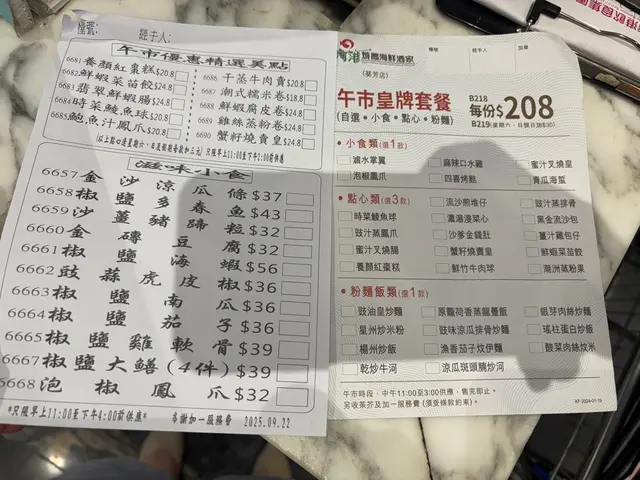 檯號:
經手人:
午市優惠精選美點
6681養顏紅棗糕$20.8
6682鮮蝦菜苗餃$24.8
6683翡翠鮮蝦腸$24.8
6684時菜鯪魚球$20.8
6685鮑魚汁鳳爪$20.8
6686 干蒸牛肉賣$20.8
6687 潮式糯米卷$18.8
6688 鮮蝦腐皮卷$24.8
6689 雞絲蒸粉卷$24.8
6690 蟹籽燒賣皇$24.8
滋味小食
6657金沙涼瓜條$37
6658椒鹽多春魚$43
6659沙薑豬蹄粒$32
6660金磚豆腐$32
6661椒鹽海蝦$56
6662豉蒜虎皮椒$36
6663椒鹽南瓜$36
6664椒鹽茄子$36
6665椒鹽雞軟骨$39
6667椒鹽大鱔(4件)$39
6668泡椒鳳爪$32
*只限早上11:00至下午4:00前供應*
多謝加一服務費 2025.09.22
海鮮酒家
(葵芳店)
檯號
經手人
午市皇牌套餐
(自選•小食•點心•粉麵)
B218
每份$208
B219(星期六、日假日加$30)
• 小食類(選1款)
滷水掌翼
麻辣口水雞
蜜汁叉燒皇
泡椒鳳爪
四喜烤麩
青瓜海蜇
• 點心類(選3款)
時菜鯪魚球
流沙煎堆仔
豉汁蒸排骨
豉汁蒸鳳爪
濃湯浸菜心
黑金流沙包
蜜汁叉燒腸
沙爹金錢肚
薑汁雞包仔
養顏紅棗糕
蟹籽燒賣皇
鮮蝦菜苗餃
鮮竹牛肉球
潮洲蒸粉果
• 粉麵飯類(選1款)
豉油皇炒麵
原籠荷香蒸籠躉飯
銀芽肉絲炒麵
星州炒米粉
豉味涼瓜排骨炒麵
瑤柱蛋白炒飯
楊州炒飯
漁香茄子炆伊麵
酸菜肉絲炆米
乾炒牛河
涼瓜斑頭腩炒河
午市時段，中午11:00至3:00供應，售完即止。
另收茶芥及加一服務費 (須受條款約束)。